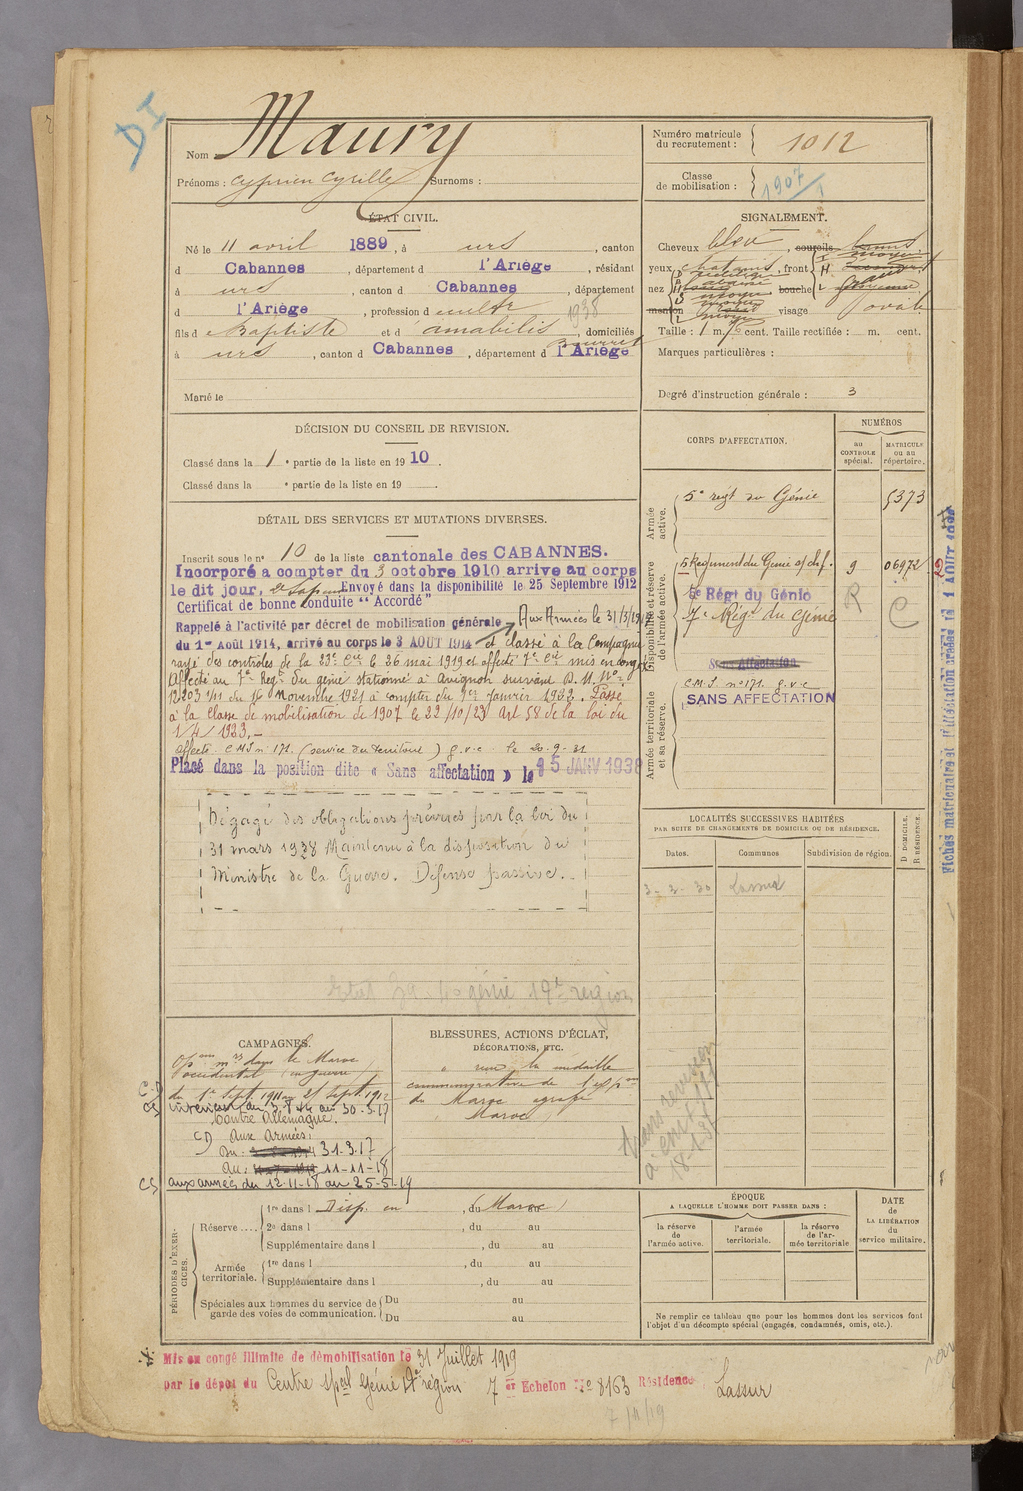 DI
Nom Maury
Prénoms : Cyprien Cyrille Surnoms :
Numéro matricule du recrutement : 1012
Classe de mobilisation : 1907
ÉTAT CIVIL.
Né le 11 avril 1889, à urs, canton
d Cabannes, département d l'Ariège, résidant
à urs, canton d Cabannes, département
d l'Ariège, profession d cultr 1938
fils d Baptiste et d amabilis, domiciliés
à urs, canton d Cabannes, département d l'Ariège
Marié le
SIGNALEMENT.
Cheveux bleu, sourcils bruns
yeux chatains, front
nez bouche
menton visage ovale
Taille : 1 m. cent. Taille rectifiée : m. cent.
Marques particulières :
Degré d'instruction générale : 3
DÉCISION DU CONSEIL DE REVISION.
Classé dans la 1 e partie de la liste en 1910.
Classé dans la e partie de la liste en 19
CORPS D'AFFECTATION.
NUMÉROS
au CONTROLE spécial.
MATRICULE ou au répertoire.
Armée active.
5e régt du Génie 5373
Disponibilité et réserve de l'armée active.
5 Régiment du Génie 9 06972
6e Régt du Génie R C
7e Régt du Génie
Sans Affectation
Armée territoriale et sa réserve.
C.M.I. n° 171 g.v.c
SANS AFFECTATION
DÉTAIL DES SERVICES ET MUTATIONS DIVERSES.
Inscrit sous le n° 10 de la liste cantonale des CABANNES.
Incorporé a compter du 3 octobre 1910 arrive au corps
le dit jour, Envoyé dans la disponibilité le 25 Septembre 1912
Certificat de bonne conduite "Accordé"
Rappelé à l'activité par décret de mobilisation générale Aux Armées le 31/3/1917
du 1er Août 1914, arrivé au corps le 3 AOUT 1914 et classé à la Compagnie
rayé des contrôles de la 23e Cie le 26 mai 1919 et affecté 7e Cie mis en congé
Affecté au 7e Régt du génie stationné à Avignon suivant D. M. No
12203 1/11 du 16 Novembre 1921 à compter du 1er Janvier 1922. Passé
à la Classe de mobilisation de 1907 le 22/10/23 Art 58 de la loi du
1/4/1923.-
affecté C.M.I n° 171. (service du territoire) g.v.c le 20-9-31
Placé dans la position dite « Sans affectation » le 15 JANV 1938
Dégagé des obligations prévues par la loi du
31 mars 1928 Maintenu à la disposition du
Ministre de la Guerre. Défense passive.
génie 19e région
LOCALITÉS SUCCESSIVES HABITÉES
PAR SUITE DE CHANGEMENTS DE DOMICILE OU DE RÉSIDENCE.
Dates. Communes Subdivision de région. D DOMICILE. R RÉSIDENCE.
3-2-30 Lassur
CAMPAGNES.
Opons mres dans le Maroc
occidental (en guerre)
du 1er Sept. 1911 au 25 Sept. 1912
intérieur du 3.8.14 au 30.3.17
Contre Allemagne.
CD Aux Armées:
Du: 31.3.17
Au: 11-11-18
CS aux armées du 12-11-18 au 25-5-19
BLESSURES, ACTIONS D'ÉCLAT, DÉCORATIONS, ETC.
a reçu la médaille
commémorative de l'expon
du Maroc agrafe
Maroc
18-1-38
PÉRIODES D'EXERCICES.
Réserve .... 1re dans l Disp. en , du (Maroc) au
2e dans l , du au
Supplémentaire dans l , du au
Armée territoriale. 1re dans l , du au
Supplémentaire dans l , du au
Spéciales aux hommes du service de garde des voies de communication. Du au
Du au
ÉPOQUE
A LAQUELLE L'HOMME DOIT PASSER DANS :
la réserve de l'armée active.
l'armée territoriale.
la réserve de l'armée territoriale
DATE de LA LIBÉRATION du service militaire.
Ne remplir ce tableau que pour les hommes dont les services font
l'objet d'un décompte spécial (engagés, condamnés, omis, etc.).
Mis en congé illimité de démobilisation le 31 Juillet 1919
par le dépôt du Centre Spal Génie région 7er Echelon No 8163 Résidence Lassur
7/11/19